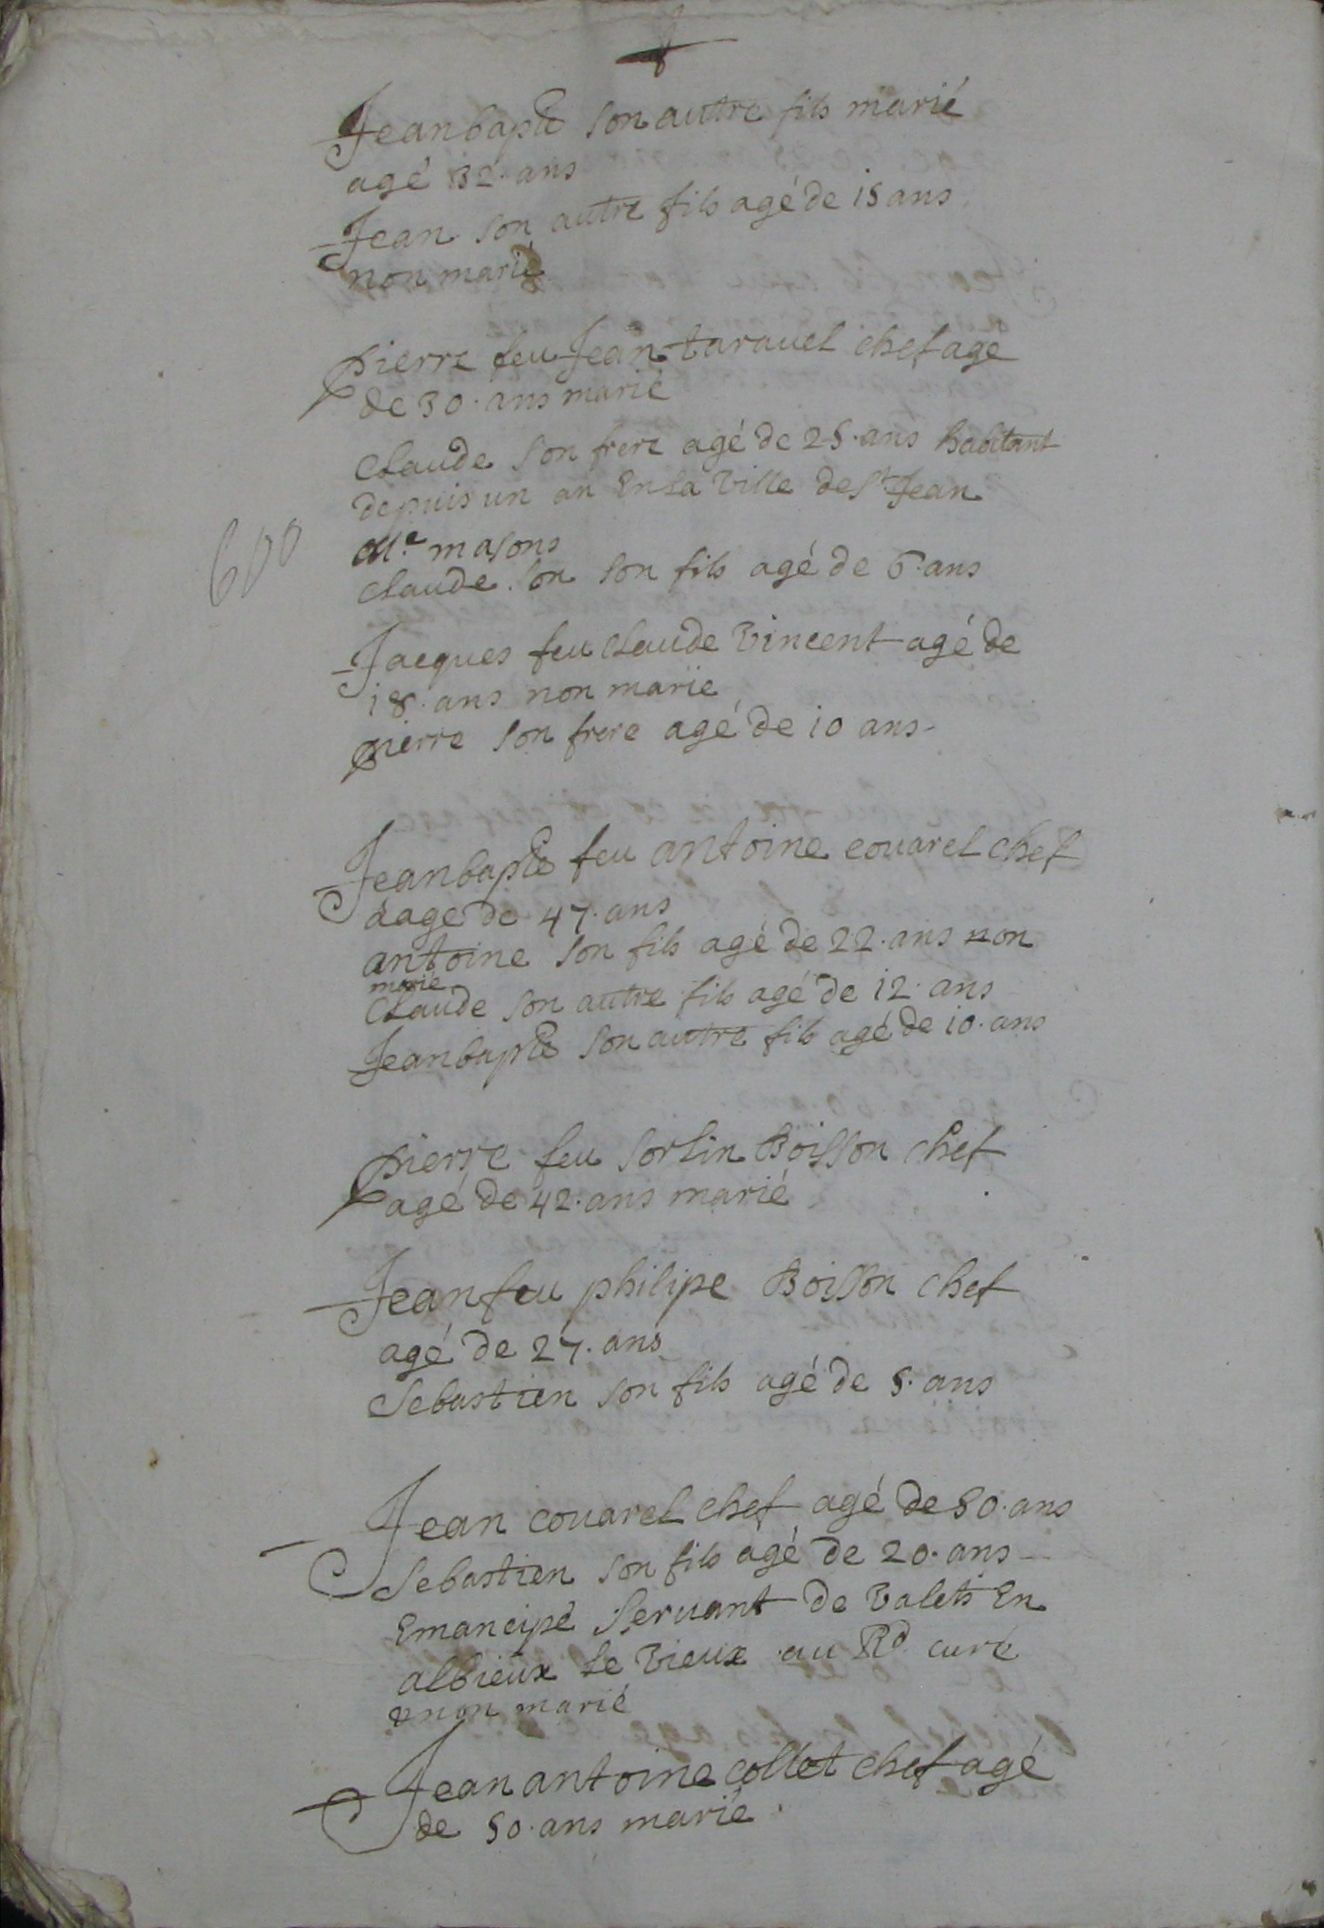 Jeanbapte son autre fils marié
agé 32. ans
Jean son autre fils agé de 15 ans
non marié
pierre feu Jean taravel chef age
de 30. ans marié
Claude son frere agé de 25. ans habitant
depuis un an En la Ville de St Jean
Me masons
Claude son son fils agé de 6. ans
600
Jacques feu claude Vincent agé de
18. ans non marie
pierre son frere agé de 10 ans
Jeanbapte feu antoine couarel chef
aage de 47. ans
antoine son fils agé de 22. ans non
marie
Claude son autre fils agé de 12. ans
Jeanbapte son autre fils agé de 10. ans
pierre feu sorlin Boisson chef
agé de 42. ans marié
Jean feu philipe Boisson chef
agé de 27. ans
Sebastien son fils agé de 5. ans
Jean couarel chef agé de 50. ans
Sebastien son fils agé de 20. ans
Emancipé servant de Valets En
albieux le Vieux au Rd curé
non marié
Jean antoine collet chef agé
de 50. ans marié